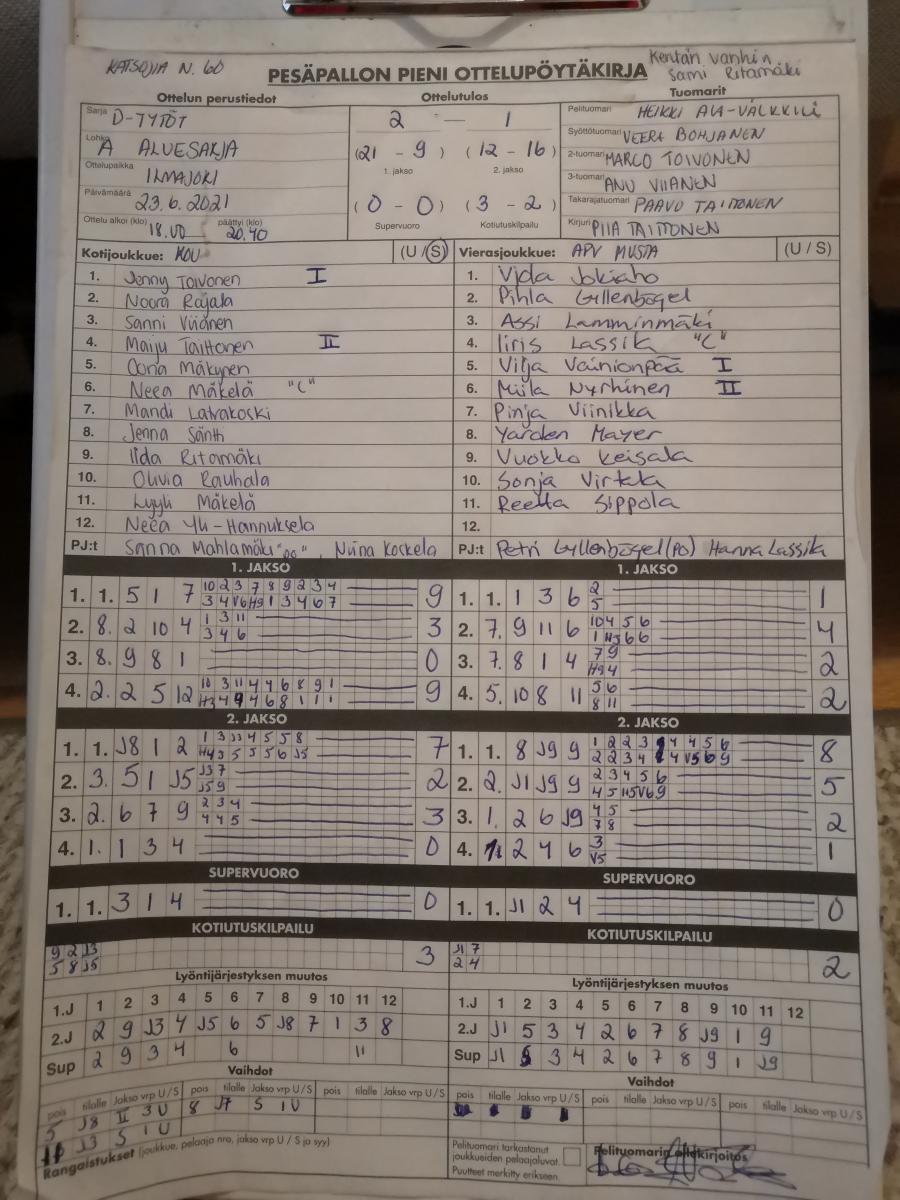 KATSOJIA N. 60
Kentän vanhin
Sami Ritamäki
PESÄPALLON PIENI OTTELUPÖYTÄKIRJA
Ottelun perustiedot
Ottelutulos
Tuomarit
Sarja D-TYTÖT
2 — 1
Pelituomari HEIKKI ALA-VÄLKKILÄ
Syöttötuomari VEERA BOHJANEN
Lohko A ALUESARJA
(21 - 9) (12 - 16)
1. jakso 2. jakso
2-tuomari MARCO TOIVONEN
Ottelupaikka ILMAJOKI
3-tuomari ANU VIIANEN
Päivämäärä 23.6.2021
(0 - 0) (3 - 2)
Supervuoro Kotiutuskilpailu
Takarajatuomari PAAVO TAITTONEN
Ottelu alkoi (klo) 18.00 päättyi (klo) 20.40
Kirjuri PIIA TAITTONEN
Kotijoukkue: KOU (U / S)
Vierasjoukkue: APV MUSTA (U / S)
1. Jenny Toivonen I
2. Noora Rajala
3. Sanni Viianen
4. Maiju Taittonen II
5. Oona Mäkynen
6. Neea Mäkelä "C"
7. Mandi Latvakoski
8. Jenna Säntti
9. Iida Ritamäki
10. Oliivia Rauhala
11. Lyyli Mäkelä
12. Neea Yli-Hannuksela
PJ:t Sanna Mahlamäki , Niina Koskela
1. Vida Jokiaho
2. Pihla Gyllenbögel
3. Assi Lamminmäki
4. Iiris Lassila "C"
5. Vilja Väinionpää I
6. Miila Nyrhinen II
7. Pinja Viinikka
8. Yarden Mayer
9. Vuokko Keisala
10. Sonja Virtala
11. Reetta Sippola
12.
PJ:t Petri Gyllenbögel (PO) Hanna Lassila
1. JAKSO
1. 1. 5 1 7
10 2 3 7 8 9 2 3 4
3 4 V6 H9 1 3 4 6 7
9
2. 8. 2 10 4
1 3 11
3 4 6
3
3. 8. 9 8 1
0
4. 2. 2 5 12
10 3 11 4 4 6 8 9 1
H3 4 9 4 6 8 1 1 1
9
1. JAKSO
1. 1. 1 3 6
2
5
1
2. 7. 9 11 6
10 4 5 6
1 H5 6 6
4
3. 7. 8 1 4
7 9
H9 4
2
4. 5. 10 8 11
5 6
8 11
2
2. JAKSO
1. 1. J8 1 2
1 3 J3 4 5 5 8
H4 3 5 5 5 6 J5
7
2. 3. 5 1 J5
J3 7
J5 9
2
3. 2. 6 7 9
2 3 4
4 4 5
3
4. 1. 1 3 4
0
2. JAKSO
1. 1. 8 J9 9
8
2. 2. J1 J9 9
2 3 4 5 6
4 5 H5 V6 9
5
3. 1. 2 6 J9
4 5
7 8
2
4. 1. 2 4 6
3
V5
1
SUPERVUORO
1. 1. 3 1 4
0
SUPERVUORO
1. 1. J1 2 4
0
KOTIUTUSKILPAILU
9 2 J3
5 8 J5
3
KOTIUTUSKILPAILU
J1 7
2 4
2
Lyöntijärjestyksen muutos
1.J 1 2 3 4 5 6 7 8 9 10 11 12
2.J 2 9 J3 4 J5 6 5 J8 7 1 3 8
Sup 2 9 3 4 6 11
Lyöntijärjestyksen muutos
1.J 1 2 3 4 5 6 7 8 9 10 11 12
2.J J1 5 3 4 2 6 7 8 J9 1 9
Sup J1 5 3 4 2 6 7 8 9 1 J9
Vaihdot
pois tilalle Jakso vrp U/S pois tilalle Jakso vrp U/S pois tilalle Jakso vrp U/S
5 J8 II 3 U 8 J7 S 1 U
J3 S 1 U
Vaihdot
pois tilalle Jakso vrp U/S pois tilalle Jakso vrp U/S pois tilalle Jakso vrp U/S
Rangaistukset (joukkue, pelaaja nro, jakso vrp U / S ja syy)
Pelituomari tarkastanut
joukkueiden pelaajaluvat.
Puutteet merkitty erikseen
Pelituomarin allekirjoitus